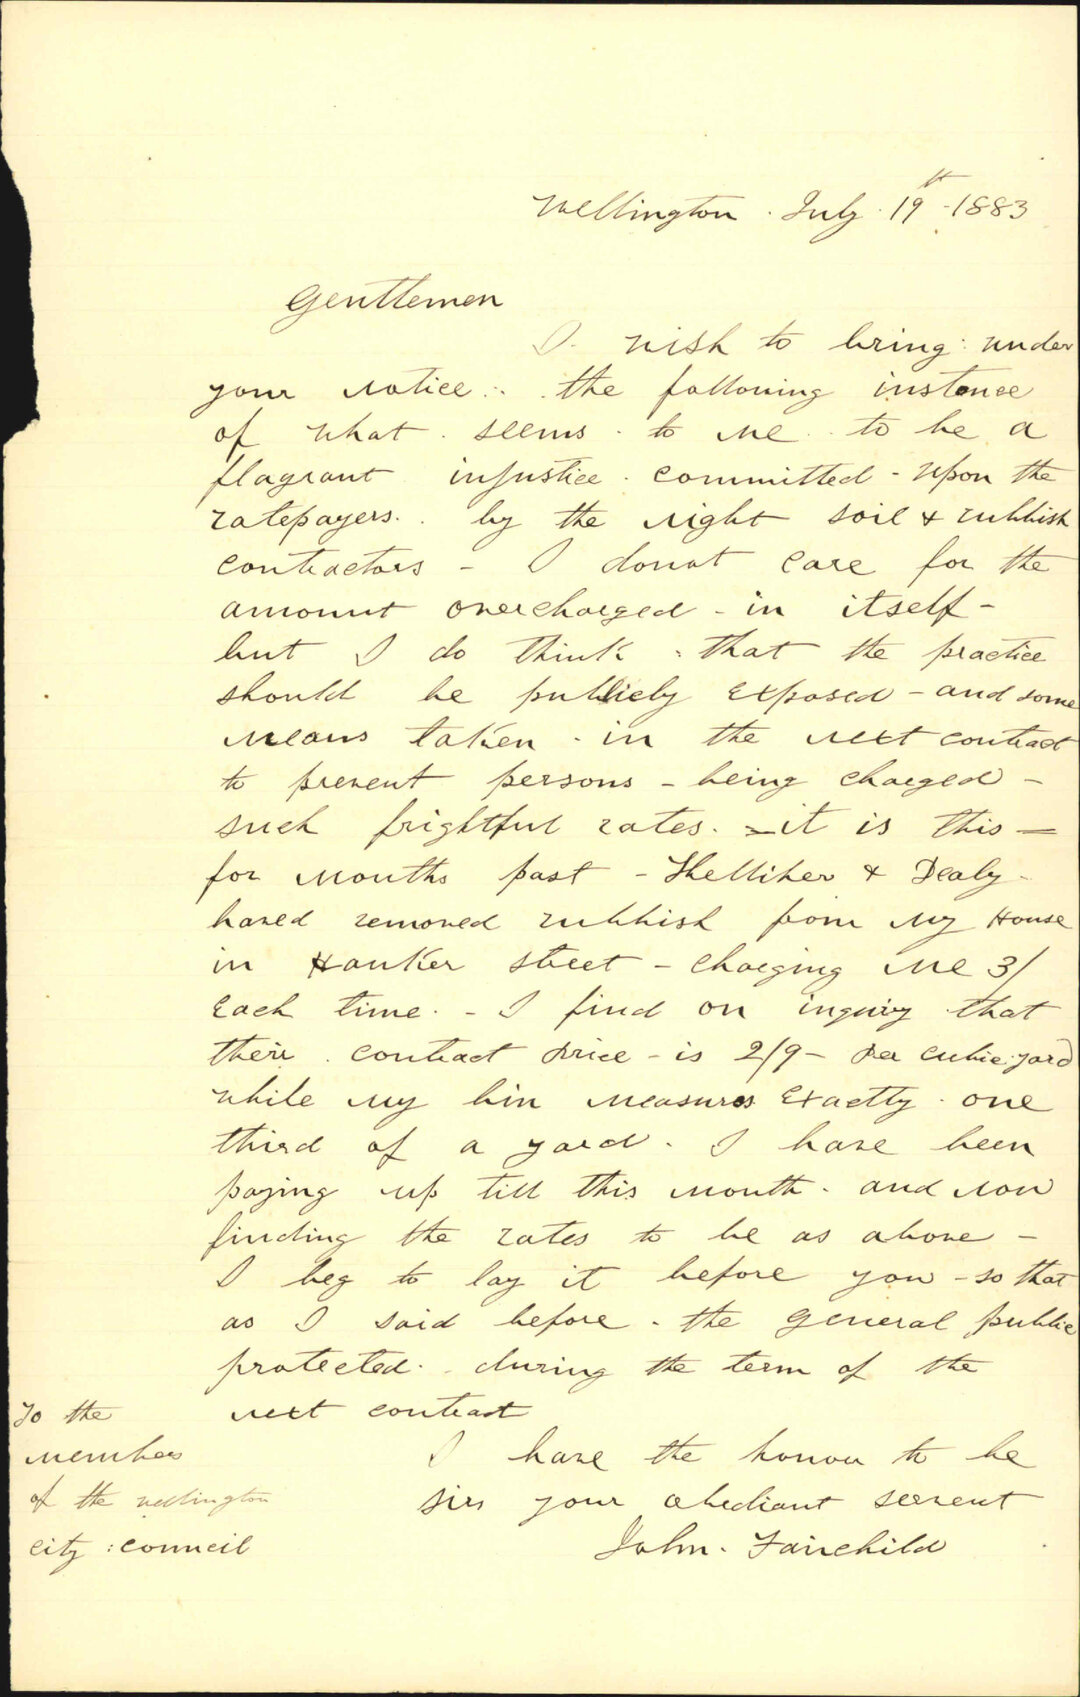 Wellington. July. 19th -1883
Gentlemen
I. wish to bring: under
your notice:. the following instance
of what. seems. to me. to be a
flagrant injustice. committed - upon the
ratepayers.. by the night soil & rubbish
contractors - I donot care for the
amount overcharged - in itself -
but I do think. that the practice
should be publicly exposed - and some
means taken. in the next contract
to prevent persons - being charged -
such frightful rates. - it is this -
for months past - & Dealy -
haved removed rubbish from my House
in Hanker street - charging me 3/
each time. - I find on inquiry that
their. contract price - is 2/9 - per cubic yard
while my bin measures exactly. one
third of a yard. I have been
paying up till this month. and now
finding the rates to be as above -
I beg to lay it before you - so that
as I said before. the general public
protected. during the term of the
next contract
I have the honour to be
sirs your obediant servent
John. Fairchild
To the
members
of the wellington
city: council